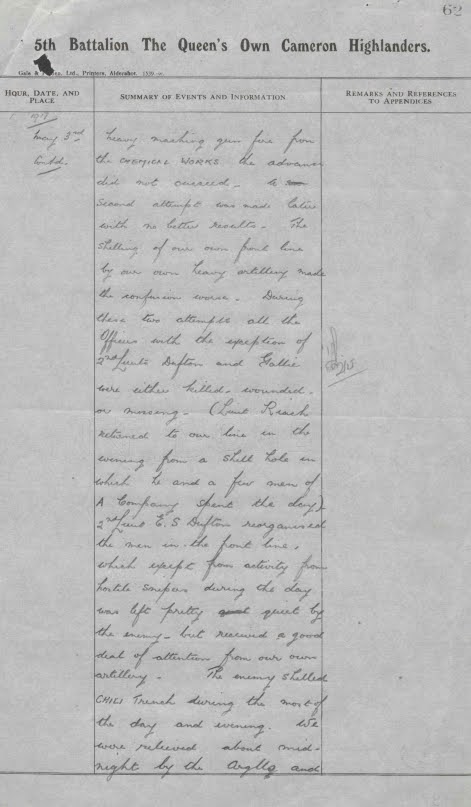 62
5th Battalion The Queen's Own Cameron Highlanders.
Gale & Ltd., Printers, Aldershot.
HOUR, DATE, AND PLACE
SUMMARY OF EVENTS AND INFORMATION
REMARKS AND REFERENCES TO APPENDICES
May 3rd
Contd.
heavy machine gun fire from
the CHEMICAL WORKS the advance
did not succeed. A
second attempt was made later
with no better results. The
shelling of our own front line
by our own heavy artillery made
the confusion worse. During
these two attempts all the
Officers with the exception of
2nd Lieuts Dufton and Gallie
were either killed, wounded,
or missing. (Lieut Reach
returned to our line in the
evening from a shell hole in
which he and a few men of
A Company spent the day)
2nd Lieut E.S Dufton reorganised
the men in the front line,
which except from activity from
hostile snipers during the day
was left pretty quiet by
the enemy - but received a good
deal of attention from our own
artillery. The enemy shelled
CHILI Trench during the most of
the day and evening. We
were relieved about mid-
night by the Arglls and